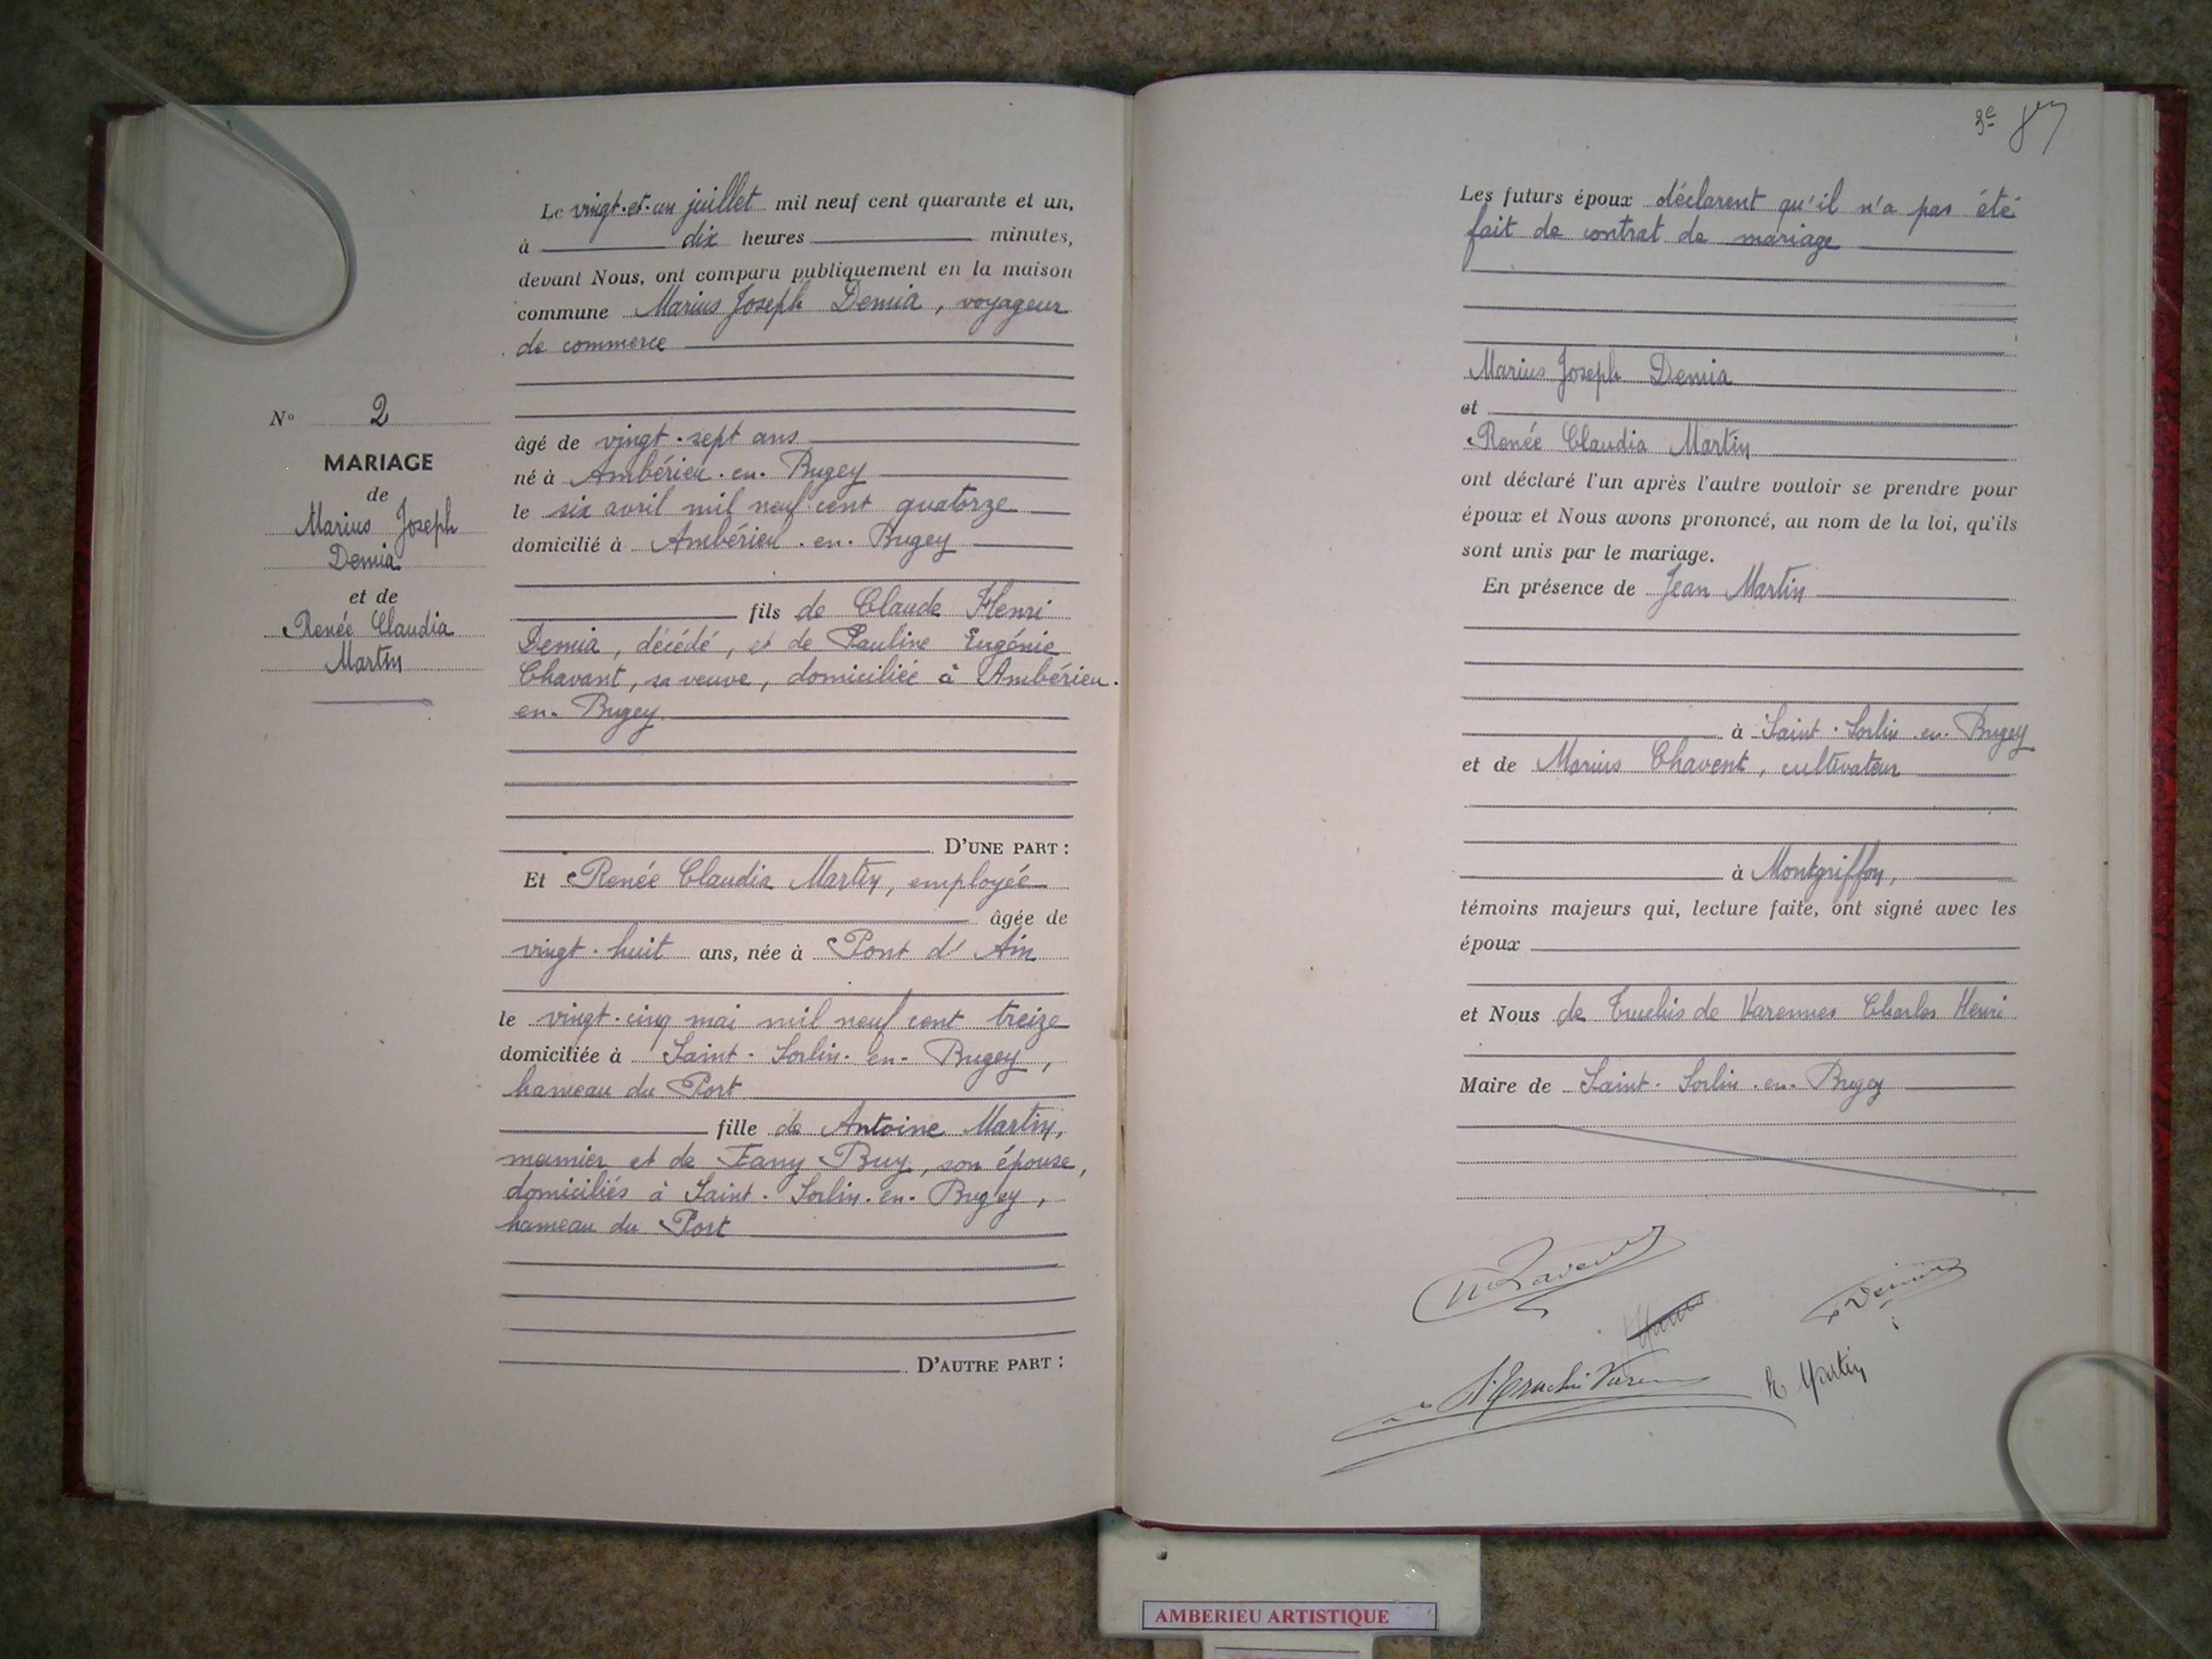 Le vingt-et-un juillet mil neuf cent quarante et un,
à dix heures minutes,
devant Nous, ont comparu publiquement en la maison
commune Marius Joseph Demia, voyageur
de commerce
N° 2
MARIAGE
de
Marius Joseph
Demia
et de
Renée Claudia
Martin
âgé de vingt-sept ans
né à Ambérieu-en-Bugey
le six avril mil neuf cent quatorze
domicilié à Ambérieu-en-Bugey
fils de Claude Henri
Demia, décédé, et de Pauline Eugénie
Chavant, sa veuve, domiciliée à Ambérieu-
en-Bugey
D'UNE PART :
Et Renée Claudia Martin, employée
âgée de
vingt-huit ans, née à Pont d'Ain
le vingt-cinq mai mil neuf cent treize
domiciliée à Saint-Sorlin-en-Bugey,
hameau du Port
fille de Antoine Martin,
meunier et de Fany Buy, son épouse,
domiciliés à Saint-Sorlin-en-Bugey,
hameau du Port
D'AUTRE PART :
Les futurs époux déclarent qu'il n'a pas été
fait de contrat de mariage
Marius Joseph Demia
et
Renée Claudia Martin
ont déclaré l'un après l'autre vouloir se prendre pour
époux et Nous avons prononcé, au nom de la loi, qu'ils
sont unis par le mariage.
En présence de Jean Martin
à Saint-Sorlin-en-Bugey
et de Marius Chavent, cultivateur
à Montgriffon,
témoins majeurs qui, lecture faite, ont signé avec les
époux
et Nous de Truchis de Varennes Charles Henri
Maire de Saint-Sorlin-en-Bugey
R Martin
AMBERIEU ARTISTIQUE